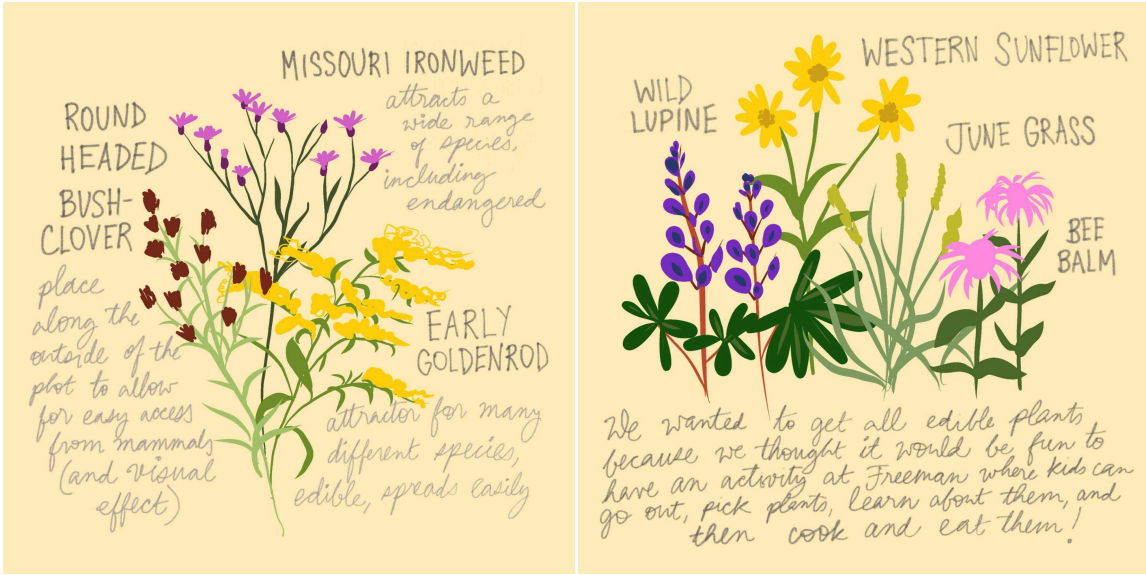 MISSOURI IRONWEED
attracts a
wide range
of species,
including
endangered
ROUND
HEADED
BUSH-
CLOVER
place
along the
outside of the
plot to allow
for easy access
from mammals
(and visual
effect)
EARLY
GOLDENROD
attractor for many
different species,
edible, spreads easily
WESTERN SUNFLOWER
WILD
LUPINE
JUNE GRASS
BEE
BALM
We wanted to get all edible plants
because we thought it would be fun to
have an activity at Freeman where kids can
go out, pick plants, learn about them, and
then cook and eat them!